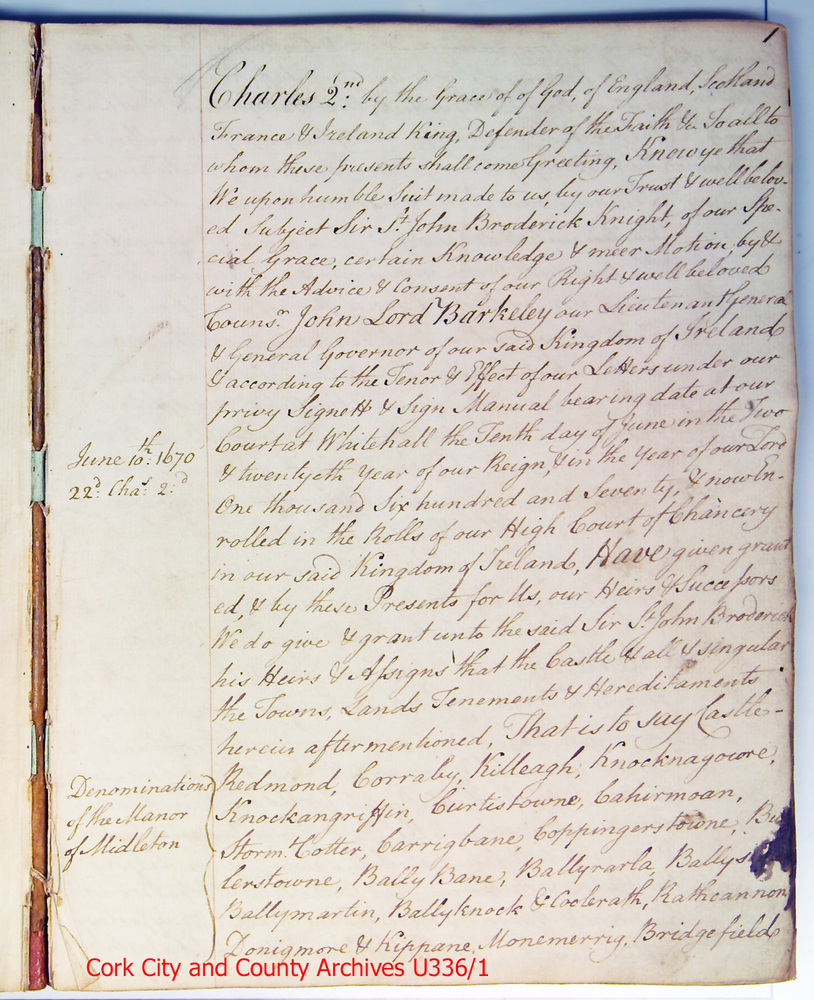 1
Charles 2nd. by the Grace of of God, of England, Scotland
France & Ireland King, Defender of the Faith &c To all to
whom these presents shall come Greeting, Know ye that
We upon humble Suit made to us, by our Trust & well belov-
ed Subject Sir St. John Broderick Knight, of our Spe-
cial Grace, certain Knowledge & meer Motion, by &
with the Advice & Consent of our Right & well beloved
Couns.r John Lord Barkeley our Lieutenant General
& General Governor of our said Kingdom of Ireland
& according to the Tenor & Effect of our Letters under our
privy Signett & Sign Manual bearing date at our
Court at Whitehall the Tenth day of June in the Two
& twentyeth Year of our Reign, & in the Year of our Lord
One thousand Six hundred and Seventy, & now En-
rolled in the Rolls of our High Court of Chancery
in our said Kingdom of Ireland, Have given grant
ed, & by these Presents for Us, our Heirs & Successors
We do give & grant unto the said Sir St. John Broderick
his Heirs & Assigns that the Castle & all & singular
the Towns, Lands Tenements & Hereditaments
herein aftermentioned, That is to say Castle-
Redmond, Corraby, Killeagh, Knocknagowre,
Knockangriffin, Curtistowne, Cahirmoan,
Storm.t Cotter, Carrigbane, Coppingerstowne,
lerstowne, Bally Bane, Ballyrarla,
Ballymartin, Ballyknock & Coolerath, Rathcannon
Donigmore & Kippane, Monemerrig, Bridgefield
June 10th: 1670
22d. Chas. 2d.
Denominations
of the Manor
of Midleton
Cork City and County Archives U336/1